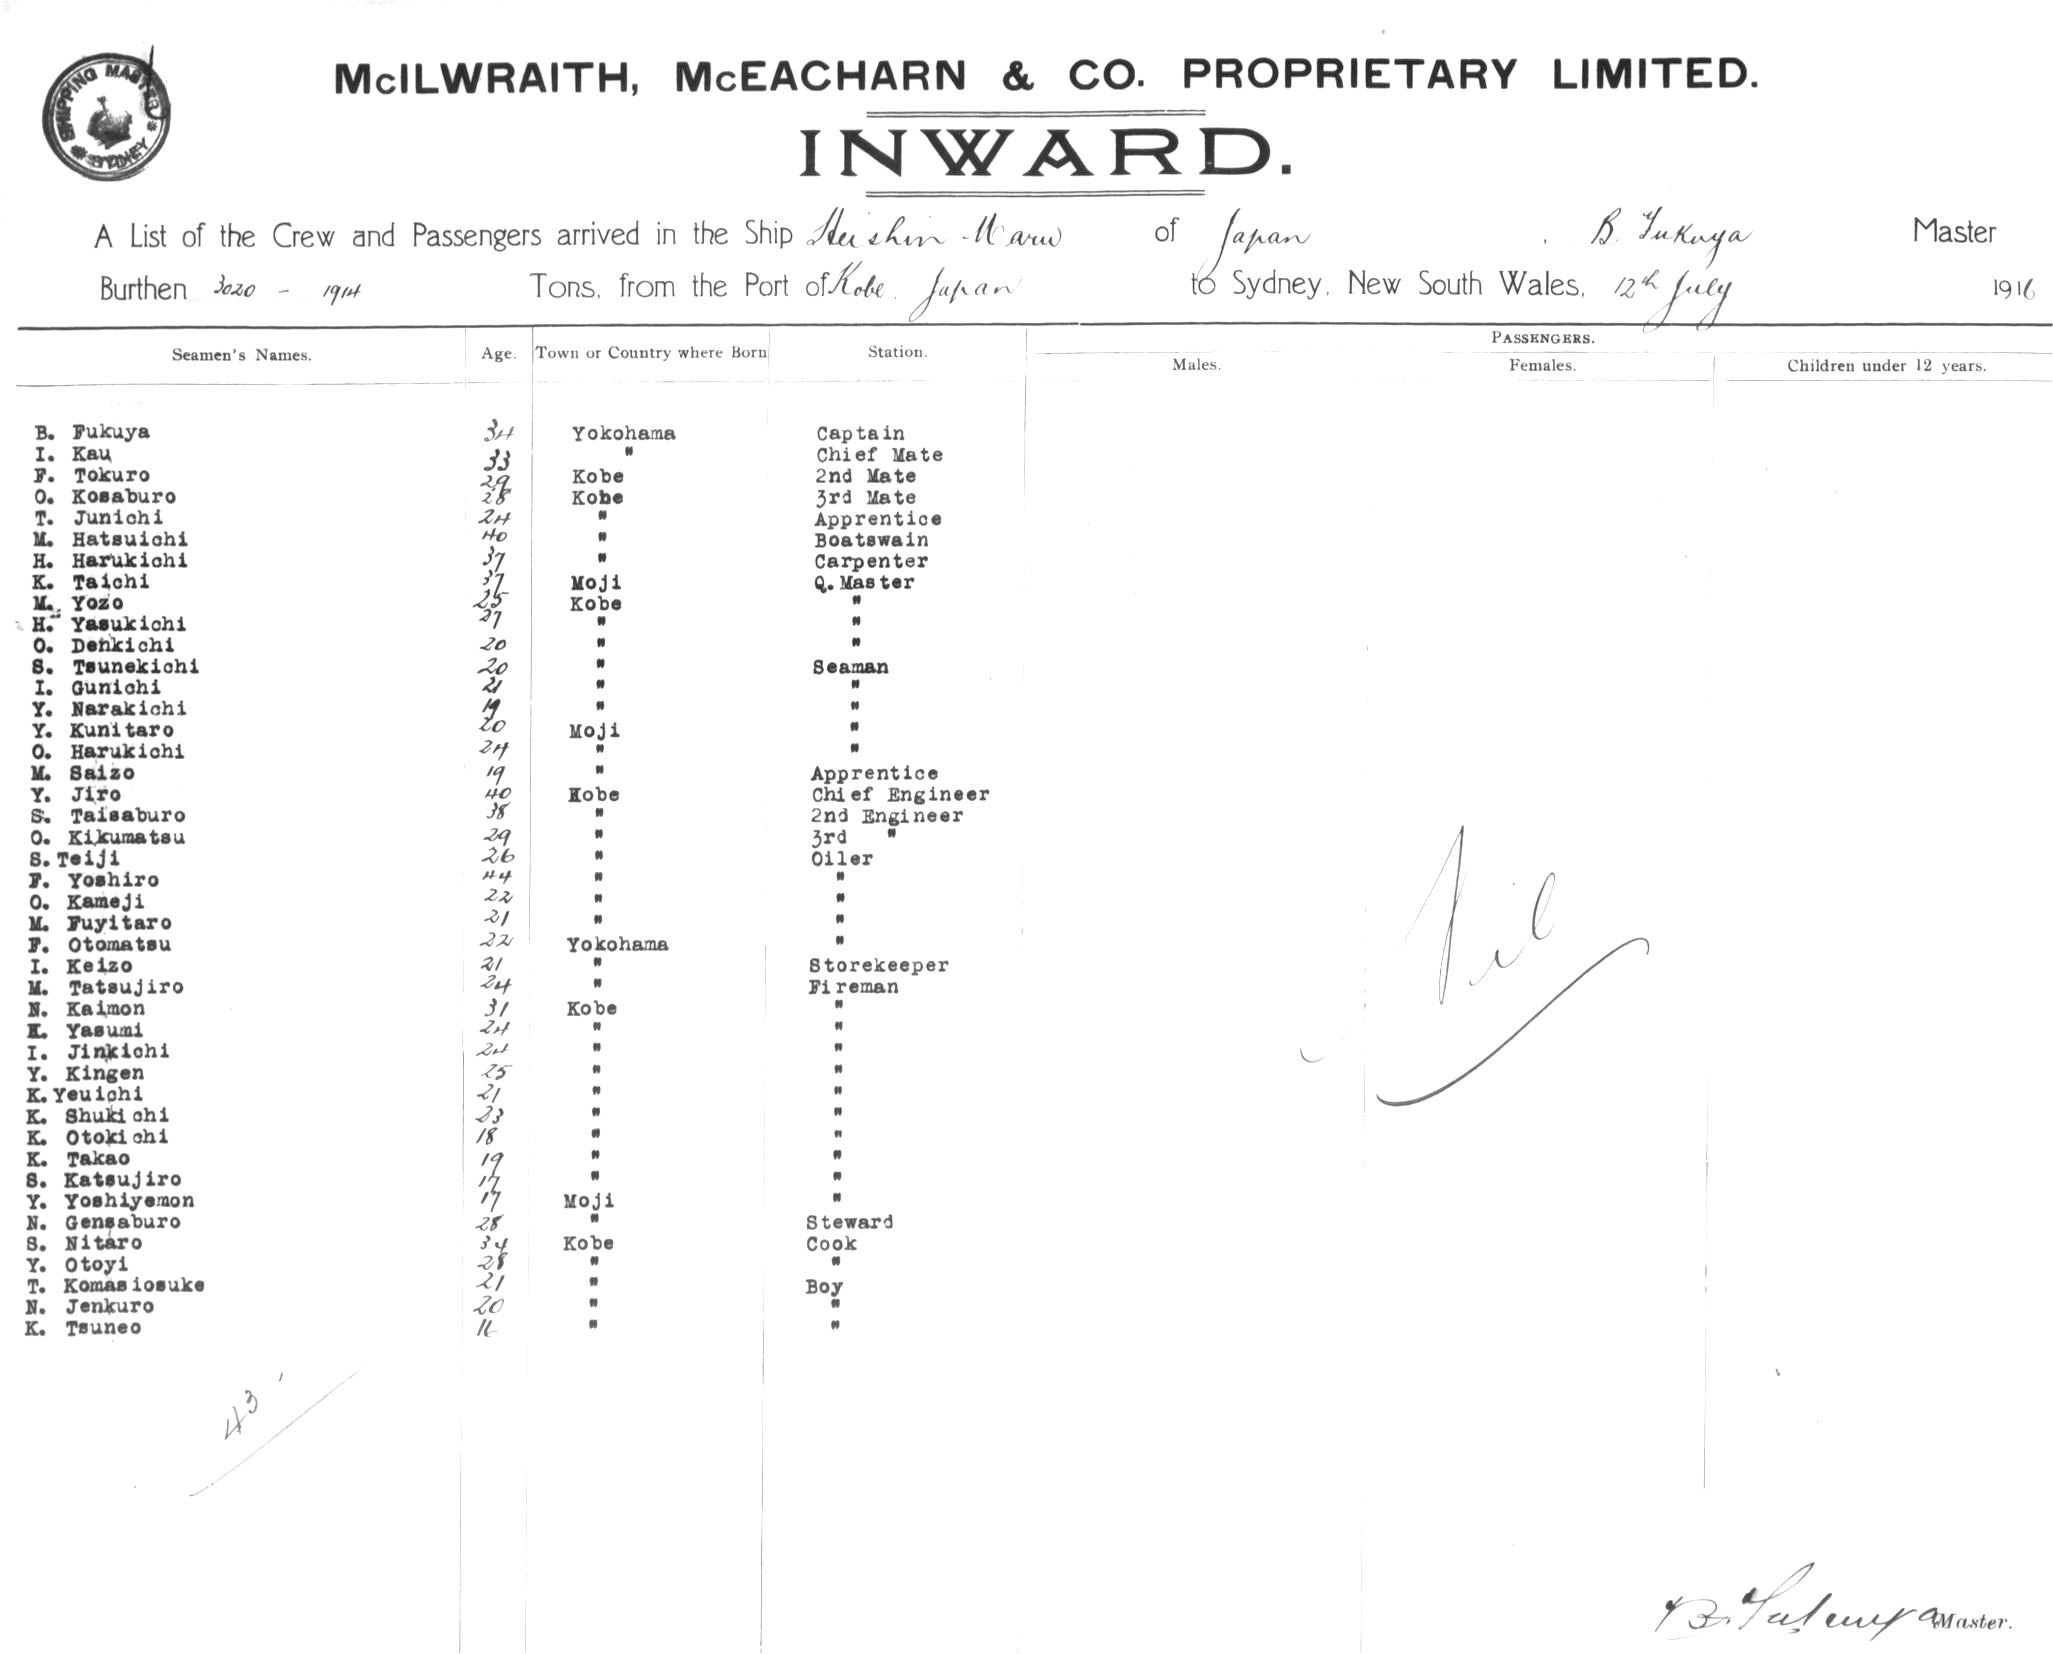 SHIPPING MASTER SYDNEY
McILWRAITH, McEACHARN & CO. PROPRIETARY LIMITED.
INWARD.
A List of the Crew and Passengers arrived in the Ship Heishin Maru of Japan . B. Fukuya Master
Burthen 3020 - 1914 Tons, from the Port of Kobe. Japan to Sydney, New South Wales, 12th July 1916
Seamen's Names. Age. Town or Country where Born Station. PASSENGERS.
Males. Females. Children under 12 years.
B. Fukuya 34 Yokohama Captain
I. Kau 33 " Chief Mate
F. Tokuro 29 Kobe 2nd Mate
O. Kosaburo 28 Kobe 3rd Mate
T. Junichi 24 " Apprentice
M. Hatsuichi 40 " Boatswain
H. Harukichi 37 " Carpenter
K. Taichi 37 Moji Q.Master
M. Yozo 25 Kobe "
H. Yasukichi 27 " "
O. Denkichi 20 " "
S. Tsunekichi 20 " Seaman
I. Gunichi 21 " "
Y. Narakichi 19 " "
Y. Kunitaro 20 Moji "
O. Harukichi 24 " "
M. Saizo 19 " Apprentice
Y. Jiro 40 Kobe Chief Engineer
S. Taisaburo 38 " 2nd Engineer
O. Kikumatsu 29 " 3rd "
S. Teiji 26 " Oiler
F. Yoshiro 44 " "
O. Kameji 22 " "
M. Fuyitaro 21 " "
F. Otomatsu 22 Yokohama "
I. Keizo 21 " Storekeeper
M. Tatsujiro 24 " Fireman
N. Kaimon 31 Kobe "
K. Yasumi 24 " "
I. Jinkichi 24 " "
Y. Kingen 25 " "
K. Yeuichi 21 " "
K. Shukichi 23 " "
K. Otokichi 18 " "
K. Takao 19 " "
S. Katsujiro 17 " "
Y. Yoshiyemon 17 Moji "
N. Gensaburo 28 " Steward
S. Nitaro 34 Kobe Cook
Y. Otoyi 28 " "
T. Komasiosuke 21 " Boy
N. Jenkuro 20 " "
K. Tsuneo 16 " "
Nil
43
B. Fukuya Master.